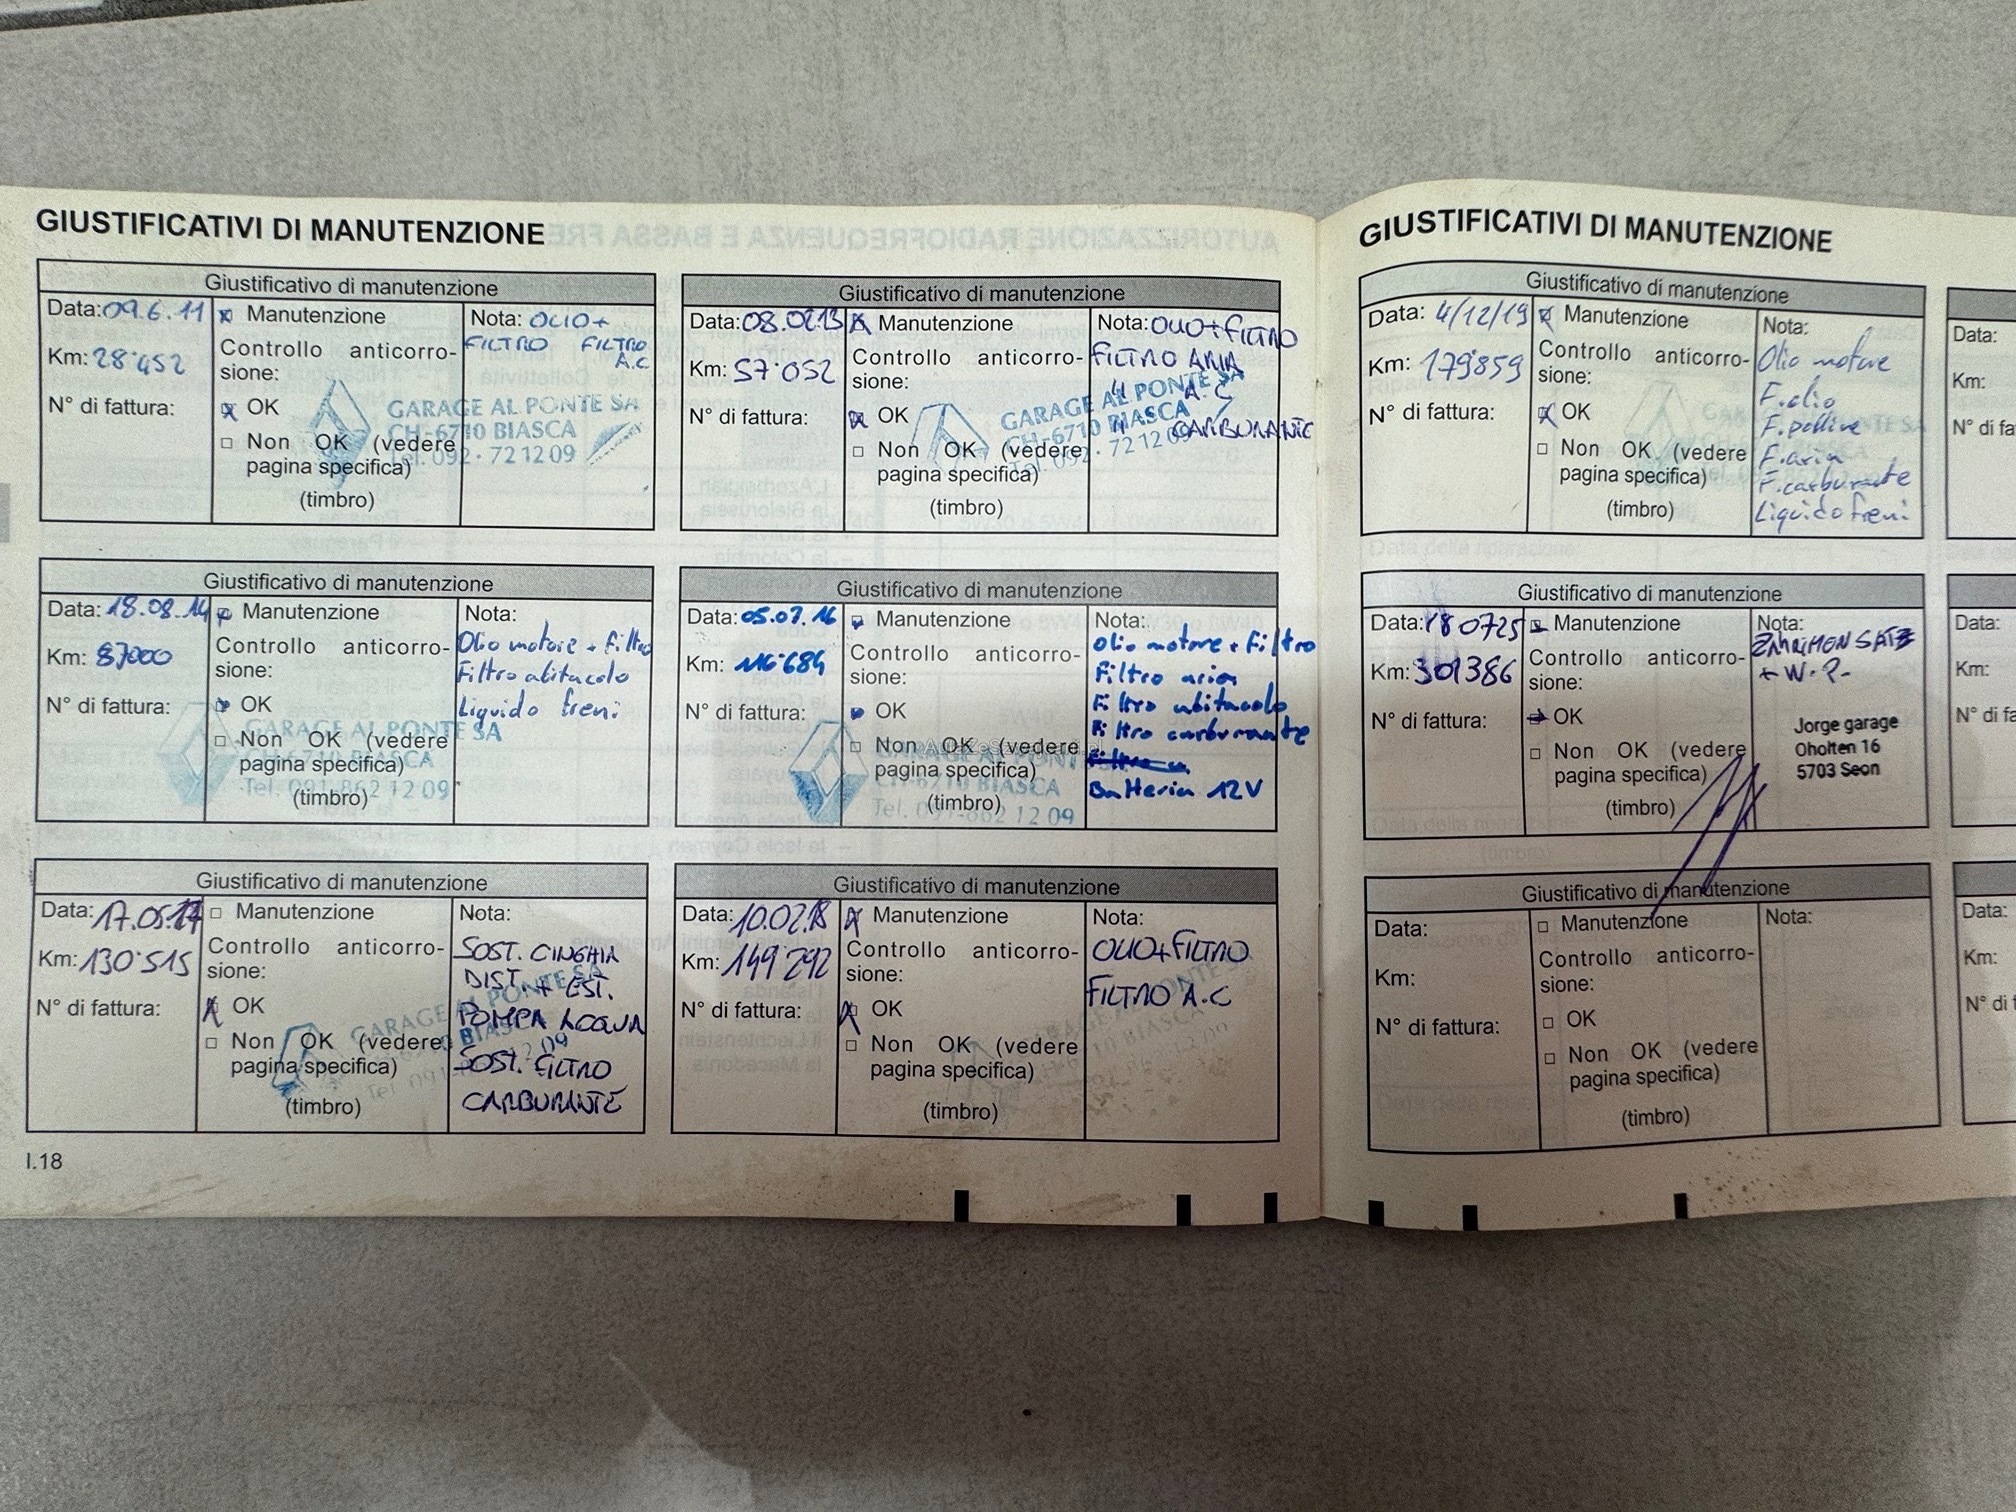 GIUSTIFICATIVI DI MANUTENZIONE
Giustificativo di manutenzione
Data: 09.6.11
Km: 28'452
N° di fattura:
Manutenzione
Controllo anticorro-
sione:
OK
Non OK (vedere
pagina specifica)
(timbro)
Nota: OLIO +
FILTRO FILTRO
A.C
GARAGE AL PONTE SA
CH-6710 BIASCA
Tel. 092 · 72 12 09
Giustificativo di manutenzione
Data: 08.02.13
Km: 57'052
N° di fattura:
Manutenzione
Controllo anticorro-
sione:
OK
Non OK (vedere
pagina specifica)
(timbro)
Nota: OLIO+FILTRO
FILTRO ARIA
A.C
CARBURANTE
GARAGE AL PONTE SA
CH-6710 BIASCA
Tel. 092 · 72 12 09
Giustificativo di manutenzione
Data: 18.08.14
Km: 87000
N° di fattura:
Manutenzione
Controllo anticorro-
sione:
OK
Non OK (vedere
pagina specifica)
(timbro)
Nota:
Olio motore + filtro
Filtro abitacolo
Liquido freni
GARAGE AL PONTE SA
CH-6710 BIASCA
Tel. 091-862 12 09
Giustificativo di manutenzione
Data: 05.07.16
Km: 116'684
N° di fattura:
Manutenzione
Controllo anticorro-
sione:
OK
Non OK (vedere
pagina specifica)
(timbro)
Nota:
Olio motore + Filtro
Filtro aria
Filtro abitacolo
Filtro carburante
Batteria 12V
GARAGE AL PONTE SA
CH-6710 BIASCA
Tel. 091-862 12 09
Giustificativo di manutenzione
Data: 17.05.17
Km: 130'515
N° di fattura:
Manutenzione
Controllo anticorro-
sione:
OK
Non OK (vedere
pagina specifica)
(timbro)
Nota:
SOST. CINGHIA
DIST. + EST.
POMPA ACQUA
SOST. FILTRO
CARBURANTE
GARAGE AL PONTE SA
BIASCA
Giustificativo di manutenzione
Data: 10.02.18
Km: 149'292
N° di fattura:
Manutenzione
Controllo anticorro-
sione:
OK
Non OK (vedere
pagina specifica)
(timbro)
Nota:
OLIO+FILTRO
FILTRO A.C
I.18
GIUSTIFICATIVI DI MANUTENZIONE
Giustificativo di manutenzione
Data: 4/12/19
Km: 179'859
N° di fattura:
Manutenzione
Controllo anticorro-
sione:
OK
Non OK (vedere
pagina specifica)
(timbro)
Nota:
Olio motore
F. olio
F. polline
F. aria
F. carburante
Liquido freni
Giustificativo di manutenzione
Data: 180725
Km: 301386
N° di fattura:
Manutenzione
Controllo anticorro-
sione:
OK
Non OK (vedere
pagina specifica)
(timbro)
Nota:
ZAHRIMENSATZ
+ W.P.
Jorge garage
Oholten 16
5703 Seon
Giustificativo di manutenzione
Data:
Km:
N° di fattura:
Manutenzione
Controllo anticorro-
sione:
OK
Non OK (vedere
pagina specifica)
(timbro)
Nota:
Data:
Km:
N° di fa
Data:
Km:
N° di fa
Data:
Km:
N° di f